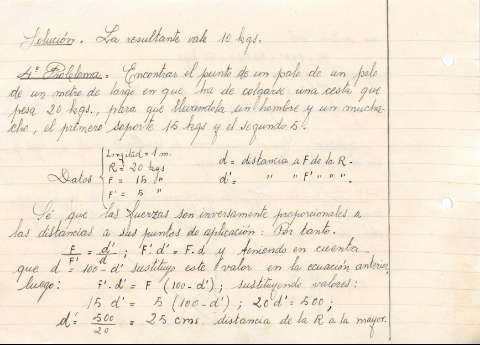 Solución. La resultante vale 10 kgs.
4º Problema. Encontrar el punto de un palo de un palo
de un metro de largo en que ha de colgarse una cesta que
pesa 20 kgs., para que llevándola un hombre y un mucha-
cho, el primero soporte 15 kgs y el segundo 5.
Datos { Longitud = 1 m.
R = 20 kgs d = distancia a F de la R.
F = 15 " d' = " " F' " " ".
F' = 5 "
Sé que las fuerzas son inversamente proporcionales a
las distancias a sus puntos de aplicación: Por tanto.
F/F' = d'/d ; F'. d' = F. d y teniendo en cuenta
que d = 100 - d' sustituyo este valor en la ecuación anterior,
luego: F'. d' = F (100 - d'); sustituyendo valores:
15 d' = 5 (100 - d') ; 20 d' = 500;
d' = 500/20 = 25 cms distancia de la R a la mayor.